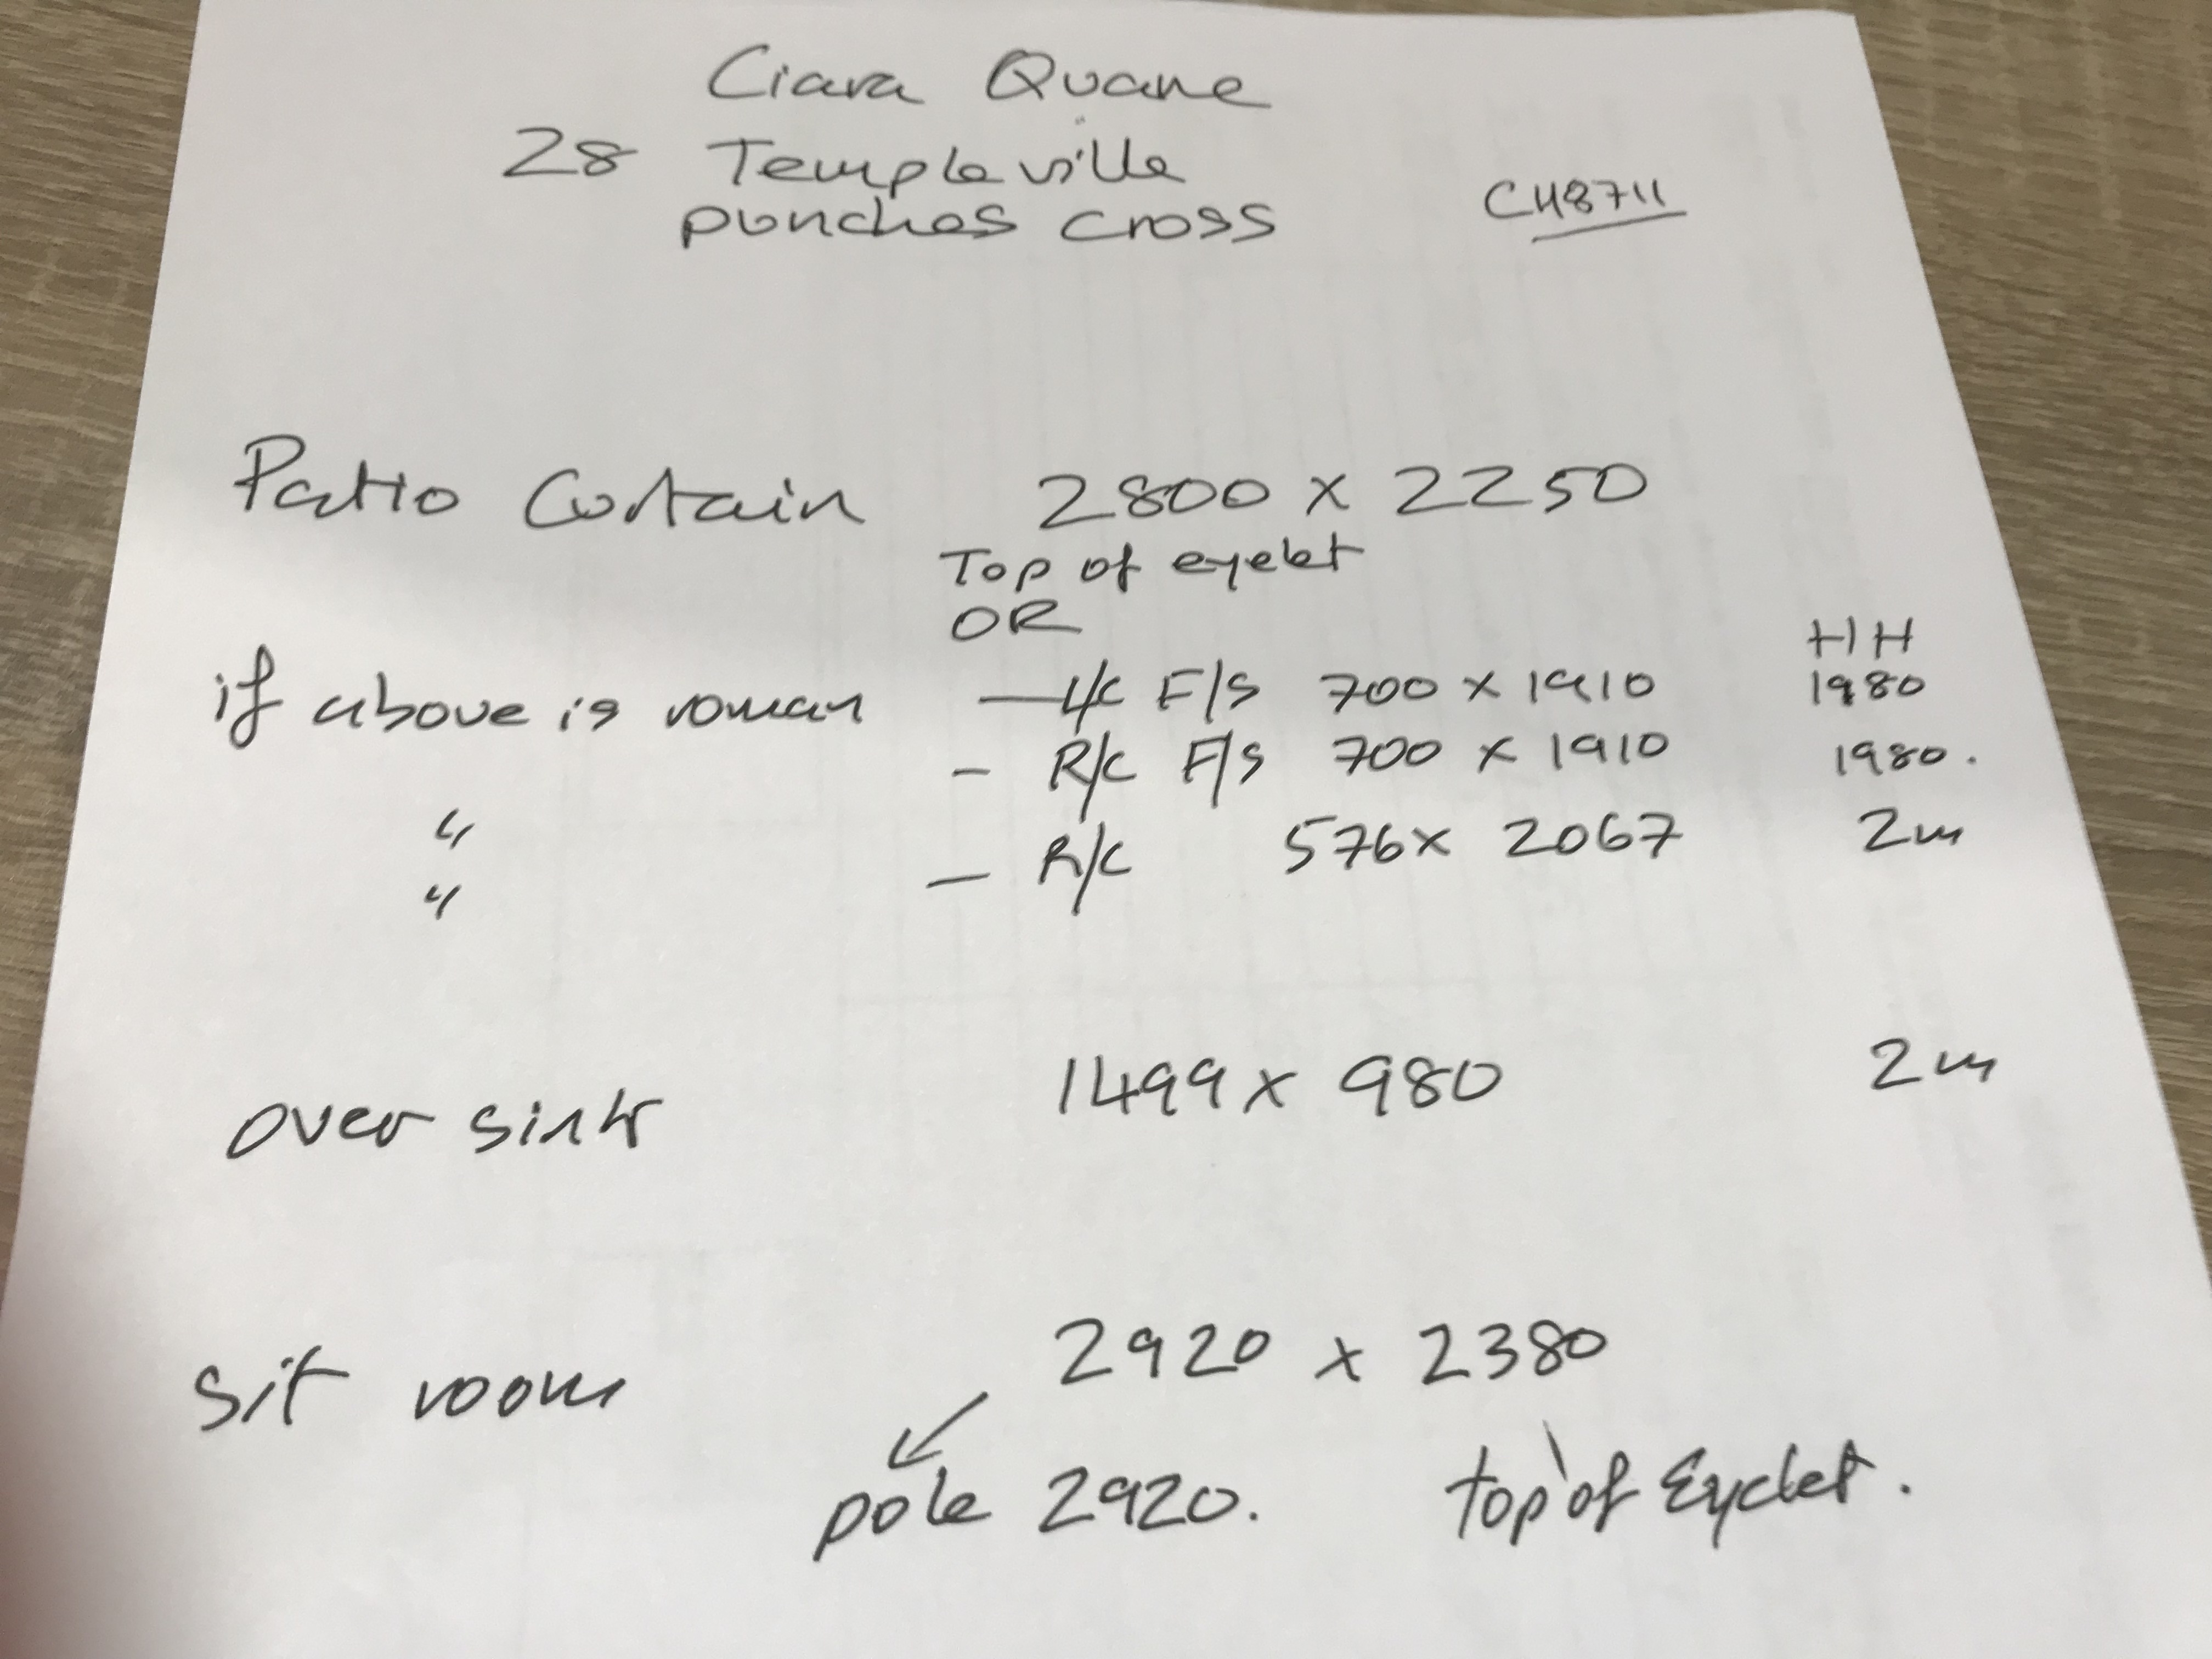 Ciara Quane
28 Templeville
punches cross
CH8711
Patio Curtain 2800 x 2250
Top of eyelet
OR
HH
if above is roman — L/C F/S 700 x 1910 1980
- R/C F/S 700 x 1910 1980.
" — R/C 576 x 2067 2m
"
over sink 1499 x 980 2m
Sit room 2920 x 2380
pole 2920. top of Eyelet.